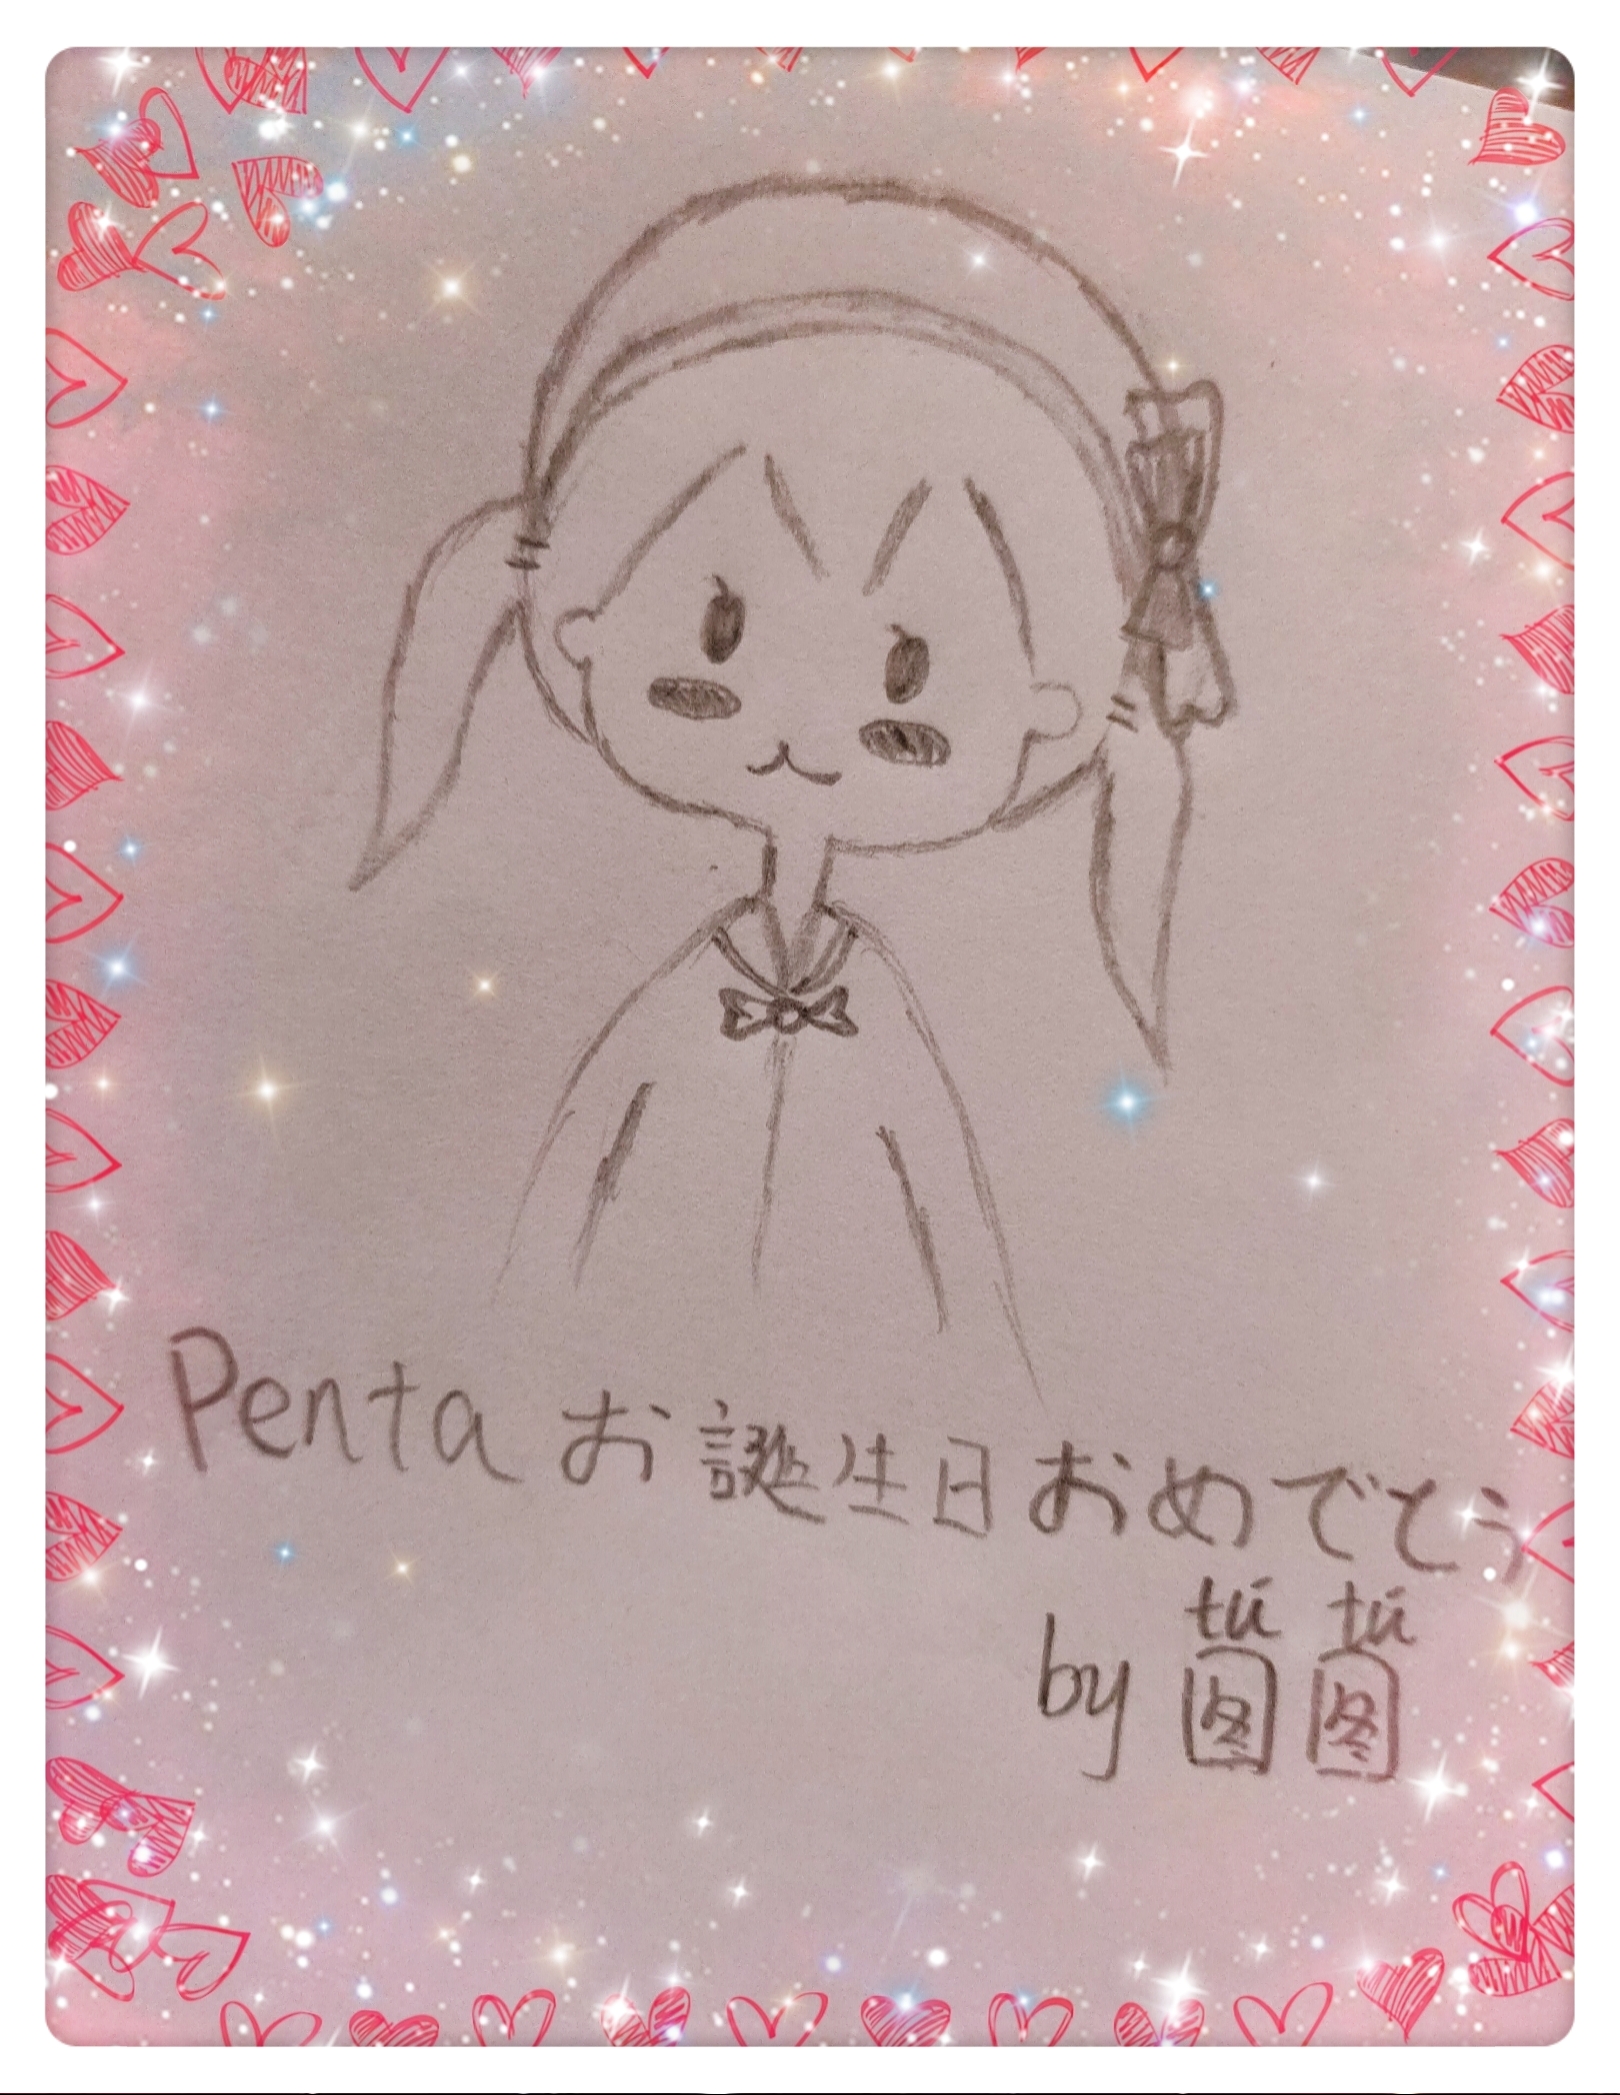 Penta お誕生日おめでとう
tú tú
by 图图